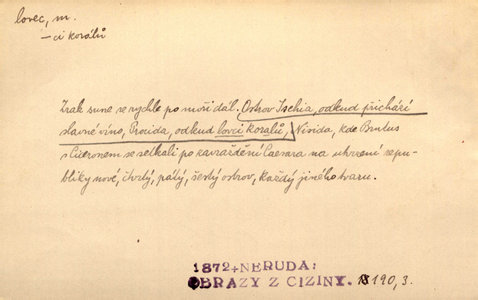 lovec, m.
—ci korálů
Zrak sune se rychle po moři dál. Ostrov Ischia, odkud přichází
slavné víno, Procida, odkud lovci koralů, Nisida, kde Brutus
s Ciceronem se setkali po zavraždění Caesara na utvrzení repu-
bliky nové, čtvrtý, pátý, šestý ostrov, každý jiného tvaru.
1872+NERUDA:
OBRAZY Z CIZINY. 190,3.